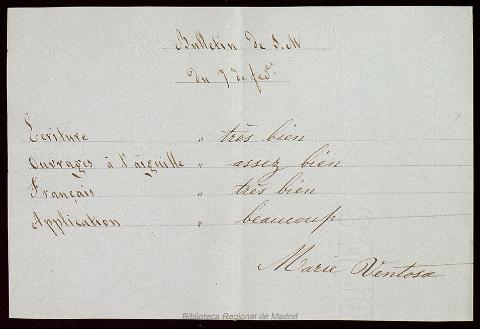 Bulletin de S. M
du 7 de fev.re
Ecriture " très bien
Ouvrages à l'aiguille " assez bien
Français " très bien
Application " beaucoup
Marie Ventosa
Biblioteca Regional de Madrid